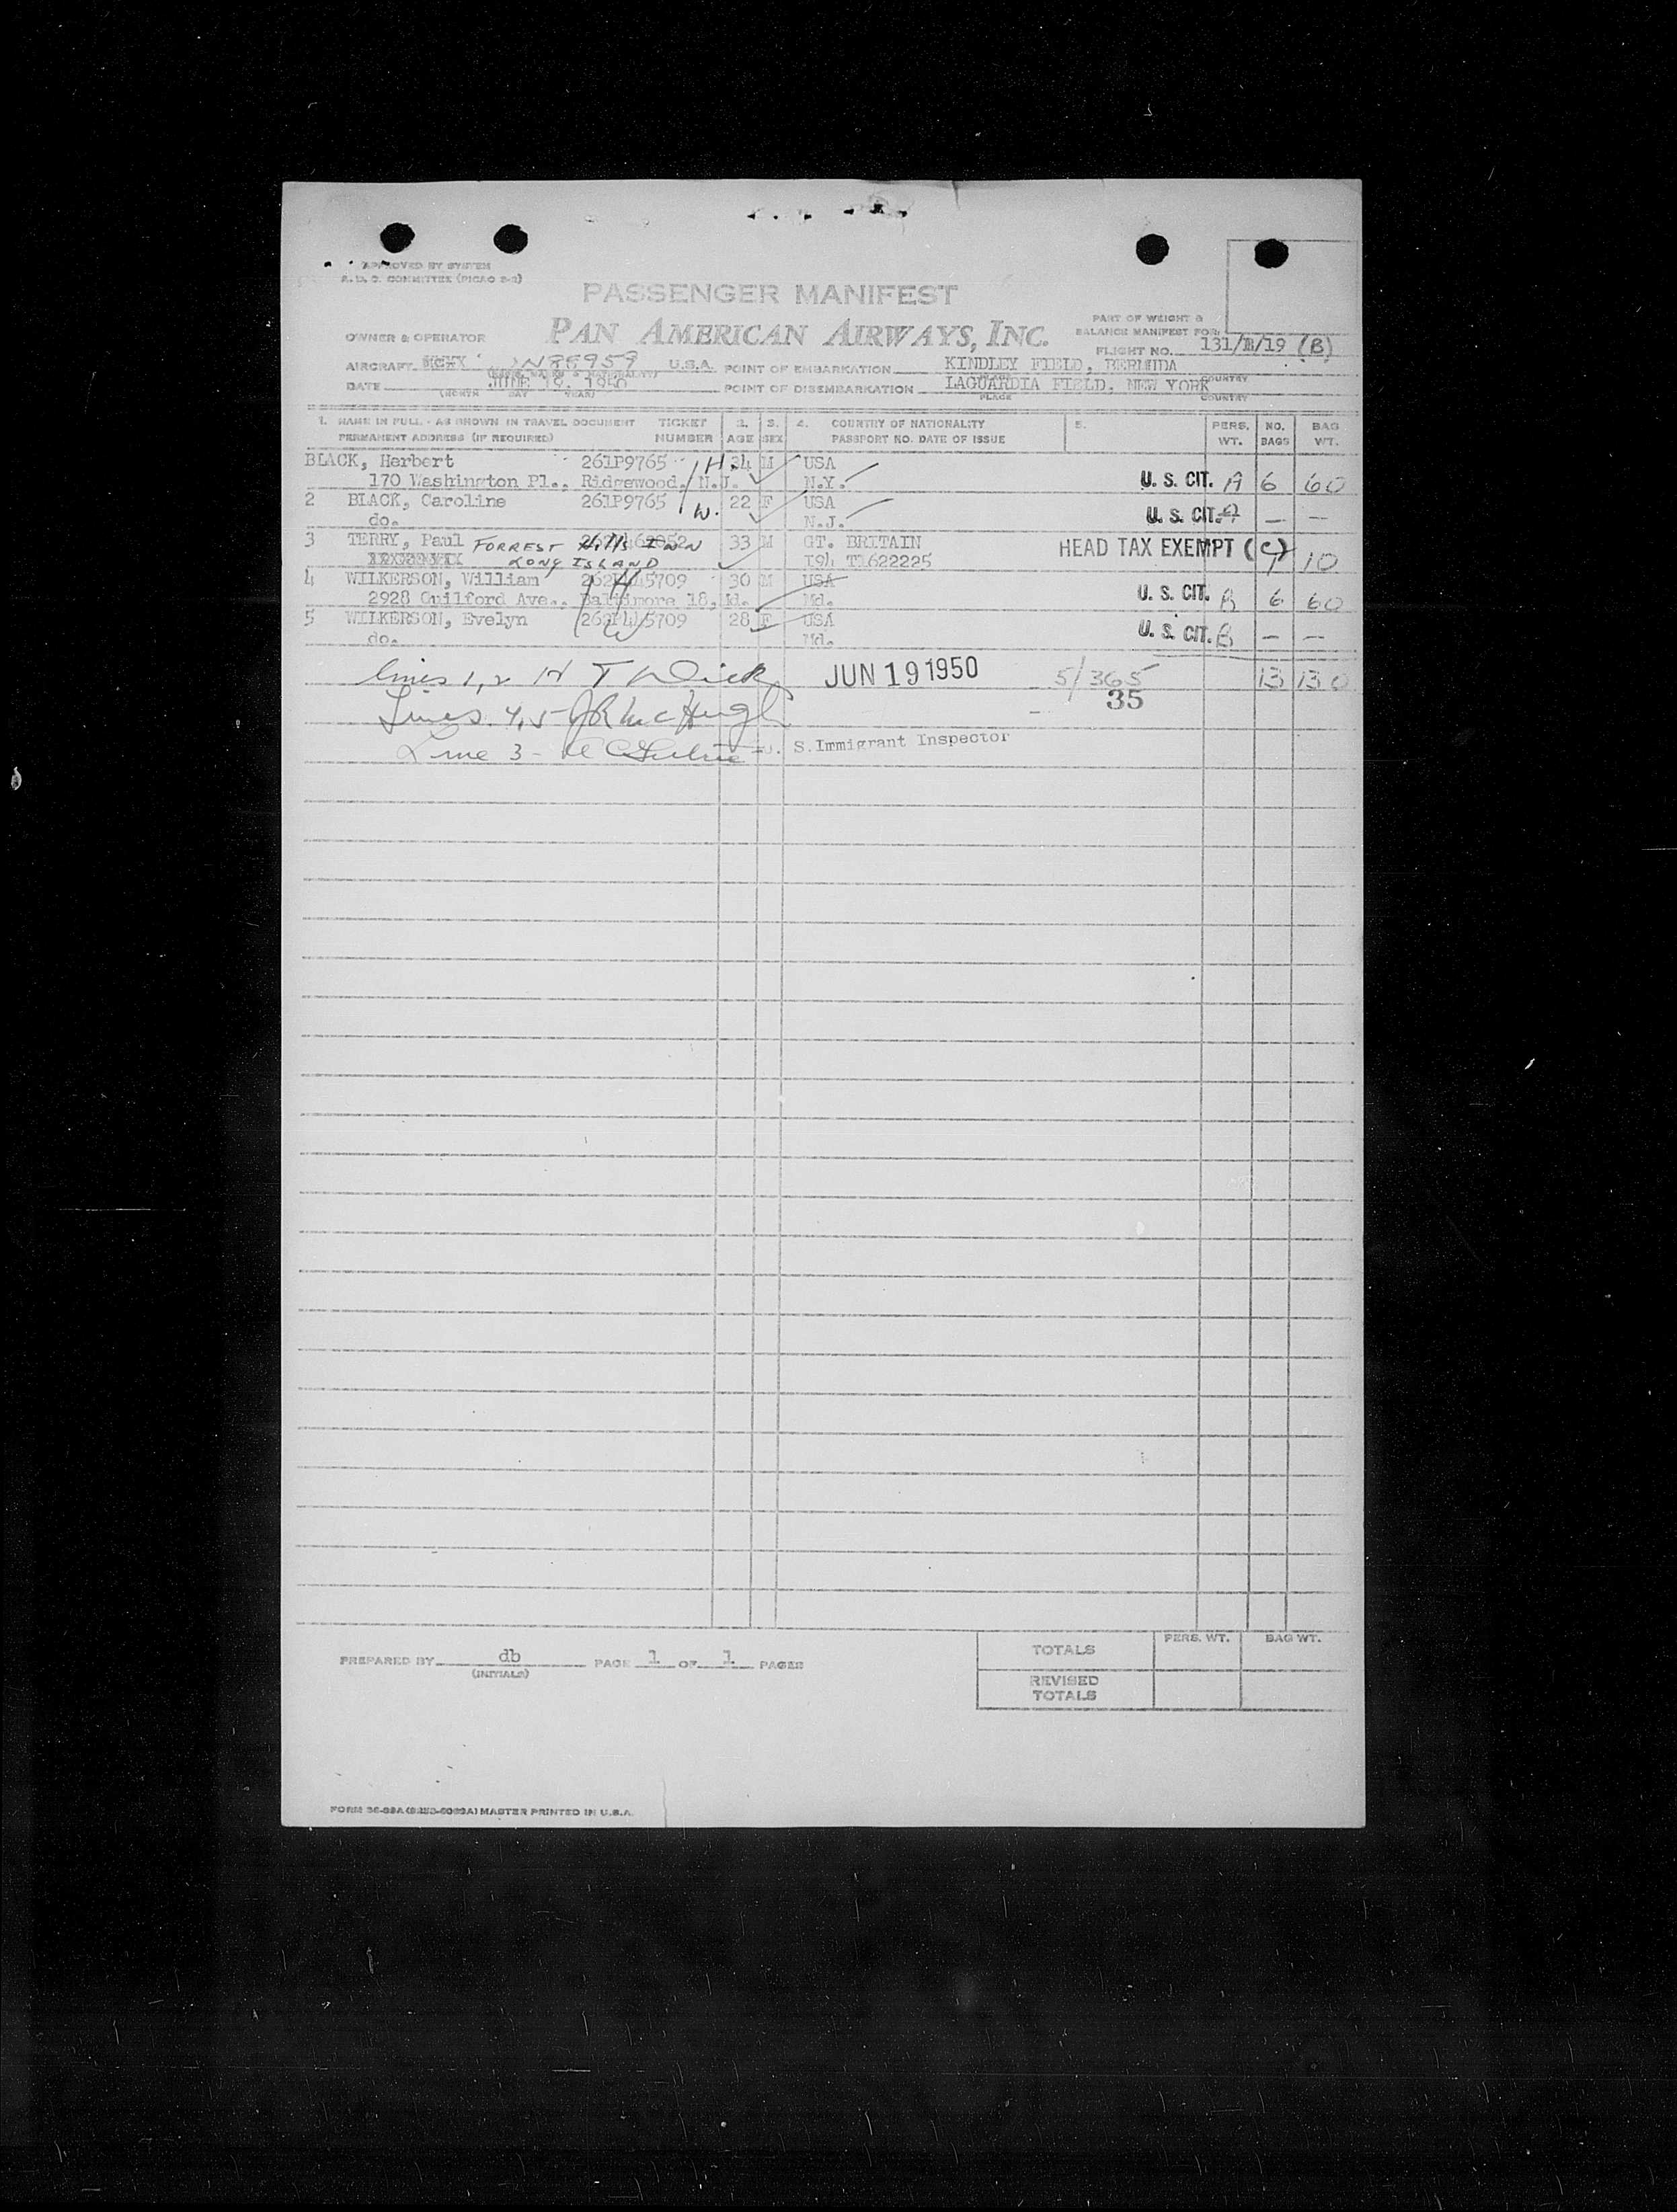 APPROVED BY SYSTEM
A. D. C. COMMITTEE (PICAO 2-2)
PASSENGER MANIFEST
PAN AMERICAN AIRWAYS, INC.
PART OF WEIGHT &
BALANCE MANIFEST FOR:
OWNER & OPERATOR
FLIGHT NO. 131/B/19 (B)
AIRCRAFT N88959 U.S.A. POINT OF EMBARKATION KINDLEY FIELD, BERMUDA
DATE JUNE 19, 1950 POINT OF DISEMBARKATION LAGUARDIA FIELD, NEW YORK COUNTRY
(MONTH DAY YEAR) PLACE COUNTRY
1. NAME IN FULL - AS SHOWN IN TRAVEL DOCUMENT TICKET 2. 3. 4. COUNTRY OF NATIONALITY 5. PERS. NO. BAG
PERMANENT ADDRESS (IF REQUIRED) NUMBER AGE SEX PASSPORT NO. DATE OF ISSUE WT. BAGS WT.
BLACK, Herbert 261P9765 H. 34 M USA
170 Washington Pl., Ridgewood, N.J. N.Y. U. S. CIT. A 6 60
2 BLACK, Caroline 261P9765 W. 22 F USA
do. N.J. U. S. CIT. A — —
3 TERRY, Paul FORREST Hills INN 33 M GT. BRITAIN HEAD TAX EXEMPT (C)
LONG ISLAND I94 T1622225 1 10
4 WILKERSON, William H 30 M USA
2928 Guilford Ave., Baltimore 18, Md. Md. U. S. CIT. B 6 60
5 WILKERSON, Evelyn W 28 F USA
do. Md. U. S. CIT. B — —
Lines 1,2 H T Dick JUN 19 1950 5/365 13 130
35
Lines 4,5 JR McHugh
Line 3 - U. S. Immigrant Inspector
PREPARED BY db PAGE 1 OF 1 PAGES
(INITIALS)
PERS. WT. BAG WT.
TOTALS
REVISED
TOTALS
MASTER PRINTED IN U.S.A.